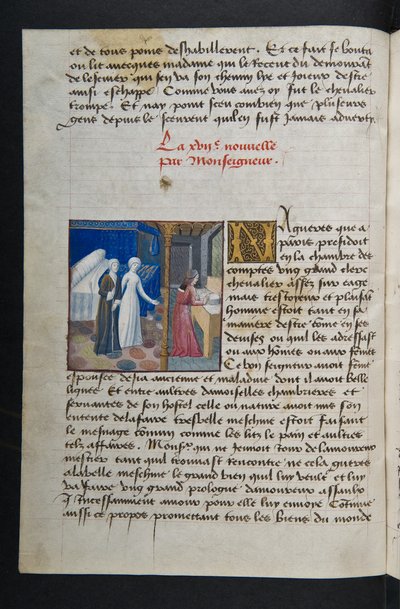 et de tous poins deshabillerent. Et ce fait se bouta
ou lit avecques madame qui le receut du demourāt
de lescuier qui sen va son chemin lye et joieux destre
ainsi eschappe Comme vous avez oy fut le chevalier
trompe. Et nay point sceu combien que plusieurs
gens depuis le sceurent quil en fust jamais adverty.
La xvii.e nouvelle
par Monseigneur.
Nagueres que a
paris presidoit
en la chambre des
comptes ung grand clerc
chevalier assez sur eage
mais tresjoyeux et plaisāt
homme estoit tant en sa
maniere destre cōme en ses
devises ou quil les adressast
ou aux hōmes ou aux fēmes
Ce bon seigneur avoit fēme
espousee desia ancienne et maladive dont il avoit belle
lignee Et entre aultres damoiselles chambrieres et
servantes de son hostel celle ou nature avoit mis son
entente de la faire tresbelle meschine estoit faisant
le mesnage commun comme les litz le pain et aultres
telz affaires. Monsr. qui ne jeunoit tour de lamoureux
mestier tant quil trouvast rencontre ne cela gueres
a la belle meschine le grand bien quil luy veult et luy
va faire ung grand prologue damoureux assaulx
incessamment amour pour elle luy envoye Continue
aussi ce propos promettant tous les biens du monde